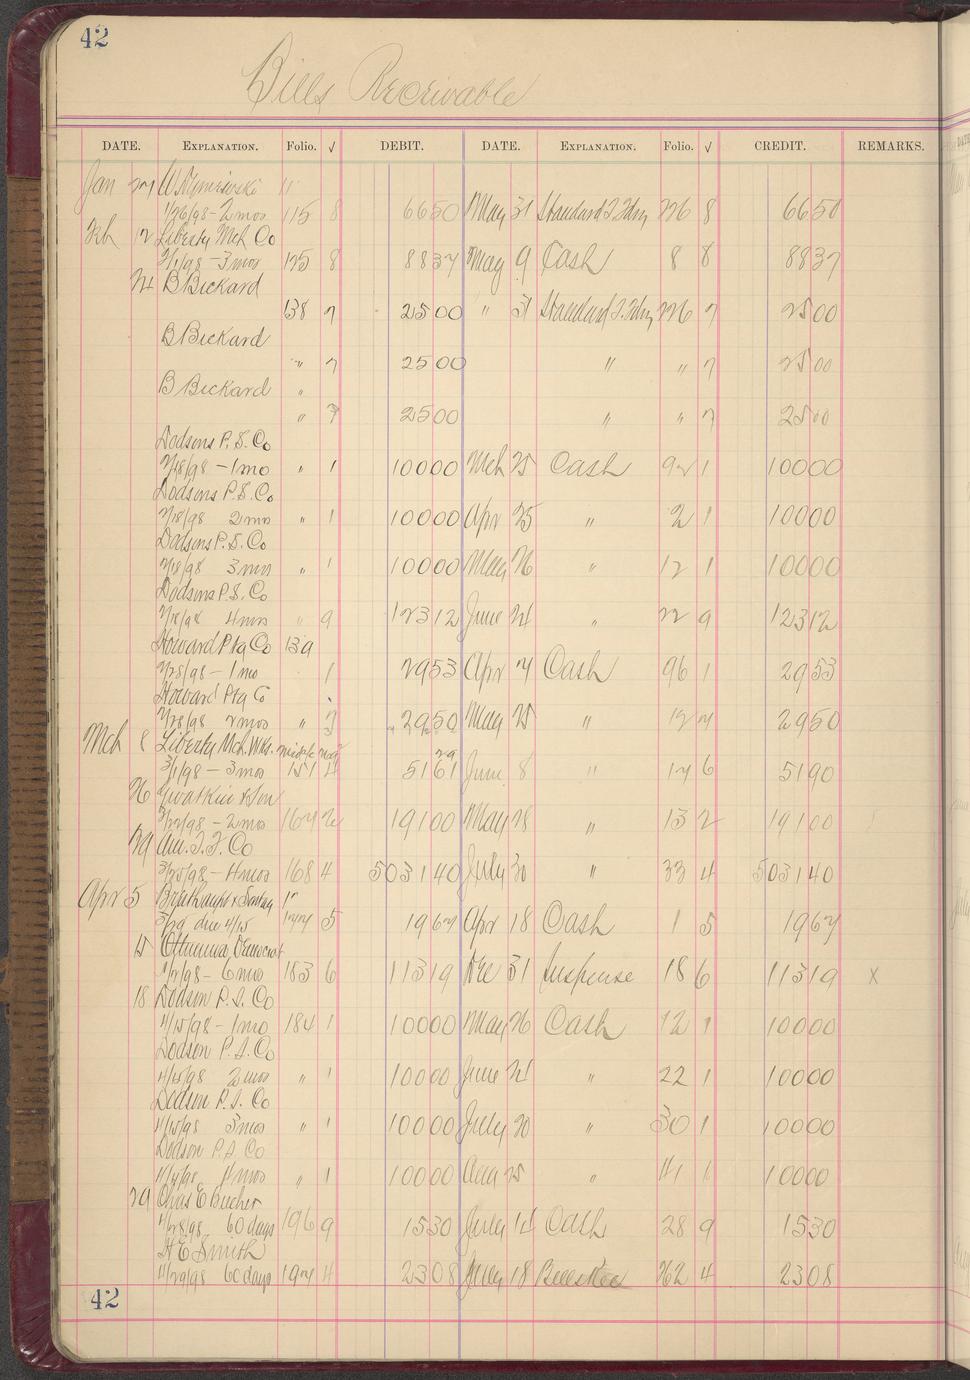 42
Bills Receivable
DATE. EXPLANATION. Folio. √ DEBIT. DATE. EXPLANATION. Folio. √ CREDIT. REMARKS.
Jan 27 "
1/26/98 - 2 mos 115 8 6650 May 31 Standard T. Fdry 226 8 6650
Feb 12 Liberty Mch Co
2/1/98 - 3 mos 125 8 8837 May 9 Cash 8 8 8837
24 B Bickard
138 7 2500 " 31 Standard T. Fdry 226 7 2500
B Bickard
" 7 2500 " " 7 2500
B Bickard "
" 7 2500 " " 7 2500
Dodsons P. S. Co
2/18/98 - 1 mo " 1 10000 Mch 25 Cash 92 1 10000
Dodsons P. S. Co
2/18/98 2 mos " 1 10000 Apr 25 " 2 1 10000
Dodsons P. S. Co
2/18/98 3 mos " 1 10000 May 26 " 12 1 10000
Dodsons P. S. Co
2/18/98 4 mos " 9 12312 June 24 " 22 9 12312
Howard Ptg Co 139
2/28/98 - 1 mo 1 2953 Apr 4 Cash 96 1 2953
Howard Ptg Co
2/28/98 2 mos " 2950 May 25 " 12 7 2950
Mch 8 Liberty Mch. Wks.
3/1/98 - 3 mos 151 4 5161 29 June 8 " 17 6 5190
26 Gwatkin & Son
3/22/98 - 2 mos 167 2 19100 May 28 " 13 2 19100
29 Am. T. F. Co
3/25/98 - 4 mos 168 4 503140 July 30 " 33 4 503140
Apr 5
3/25 due 4/15 177 5 1967 Apr 18 Cash 1 5 1967
15 Ottumwa Democrat
4/2/98 - 6 mos 183 6 11319 Dec 31 Suspense 18 6 11319 x
18 Dodson P. S. Co
4/15/98 - 1 mo 184 1 10000 May 26 Cash 12 1 10000
Dodson P. S. Co
4/15/98 2 mos " 1 10000 June 21 " 22 1 10000
Dodson P. S. Co
4/15/98 3 mos " 1 10000 July 20 " 30 1 10000
Dodson P. S. Co
4/15/98 4 mos " 1 10000 Aug 25 " 41 1 10000
29 Chas E Bucher
4/28/98 60 days 196 9 1530 July 14 Cash 28 9 1530
H E Smith
4/29/98 60 days 197 4 2308 July 18 Bills Rec 262 4 2308
42